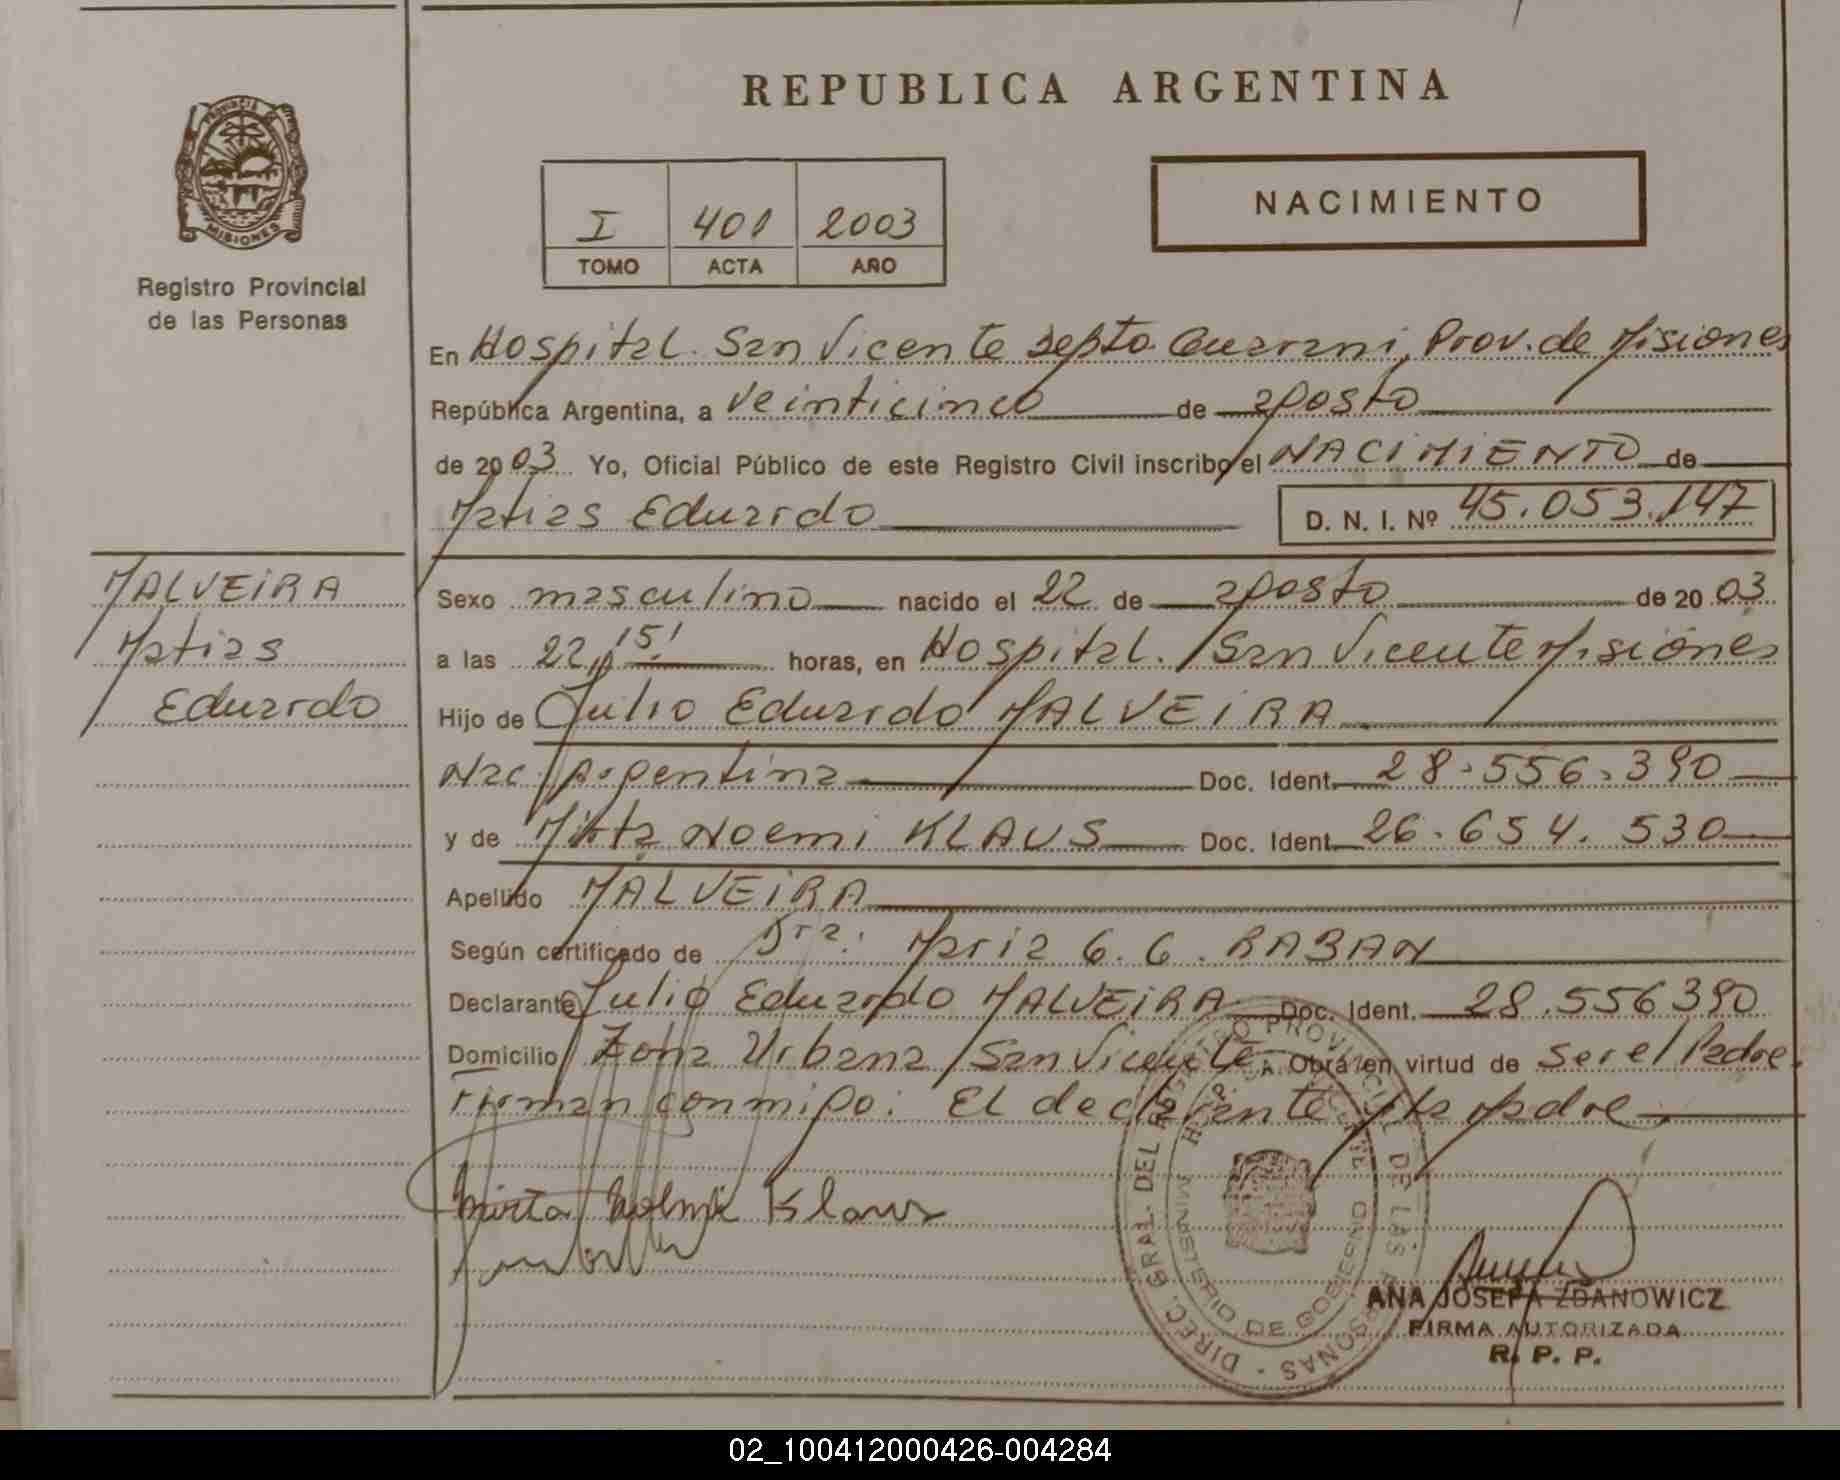 REPUBLICA ARGENTINA
PROVINCIA DE MISIONES
Registro Provincial
de las Personas
I 401 2003
TOMO ACTA AÑO
NACIMIENTO
En Hospital. San Vicente Depto. Guarani, Prov. de Misiones
República Argentina, a veinticinco de agosto
de 2003 Yo, Oficial Público de este Registro Civil inscribo el NACIMIENTO de
Matias Eduardo D. N. I. Nº 45.053.147
MALVEIRA
Matias
Eduardo
Sexo masculino nacido el 22 de agosto de 2003
a las 22,15' horas, en Hospital. San Vicente Misiones
Hijo de Julio Eduardo MALVEIRA
Nac. Argentina Doc. Ident. 28.556.390
y de Mirta Noemi KLAUS Doc. Ident. 26.654.530
Apellido MALVEIRA
Según certificado de Dra: Maria G. G. RABAN
Declarante Julio Eduardo MALVEIRA Doc. Ident. 28.556390
Domicilio Zona Urbana San Vicente. Obra en virtud de ser el Padre.
Firman conmigo: El declarante y la Madre.
Mirta Noemi Klaus
DIREC. GRAL. DEL REGISTRO PROVINCIAL DE LAS PERSONAS
MINISTERIO DE GOBIERNO
ANA JOSEFA ZDANOWICZ
FIRMA AUTORIZADA
R. P. P.
02_100412000426-004284